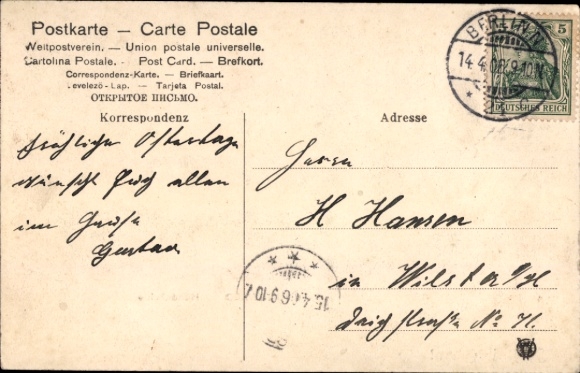 Postkarte — Carte Postale
Weltpostverein. — Union postale universelle.
Cartolina Postale. Post Card. — Brefkort.
Correspondenz-Karte. — Briefkaart.
Levelező-Lap. — Tarjeta Postal.
ОТКРЫТОЕ ПИСЬМО.
Korrespondenz
Adresse
BERLIN
14.4.06 9-10N
5
DEUTSCHES REICH
Fröhliche Ostertage
wünscht Euch allen
im Hause
Gustav
Herrn
H Hansen
in Wilster a/H
Deichstraße No 71.
15.4.06 9-10